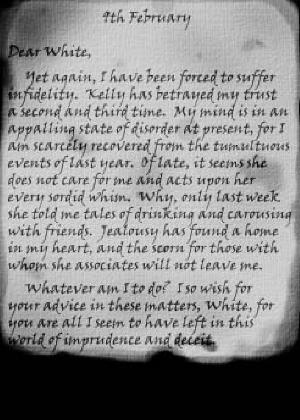 9th February
Dear White,
Yet again, I have been forced to suffer
infidelity. Kelly has betrayed my trust
a second and third time. My mind is in an
appalling state of disorder at present, for I
am scarcely recovered from the tumultuous
events of last year. Of late, it seems she
does not care for me and acts upon her
every sordid whim. Why, only last week
she told me tales of drinking and carousing
with friends. Jealousy has found a home
in my heart, and the scorn for those with
whom she associates will not leave me.
Whatever am I to do? I so wish for
your advice in these matters, White, for
you are all I seem to have left in this
world of imprudence and deceit.